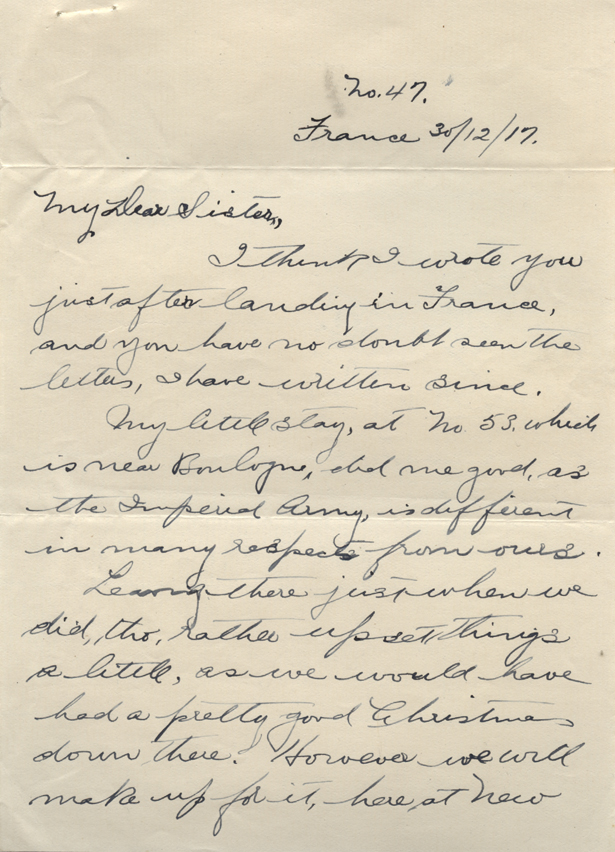 No. 47.
France 30/12/17.
My Dear Sister,,
I think I wrote you
just after landing in France,
and you have no doubt seen the
letters, I have written since.
My little stay, at No 53, which
is near Boulogne, did me good, as
the Imperial Army, is different
in many respects from ours.
Leaving there just when we
did, tho, rather upset things
a little, as we would have
had a pretty good Christmas
down there. However we will
make up for it, here at New